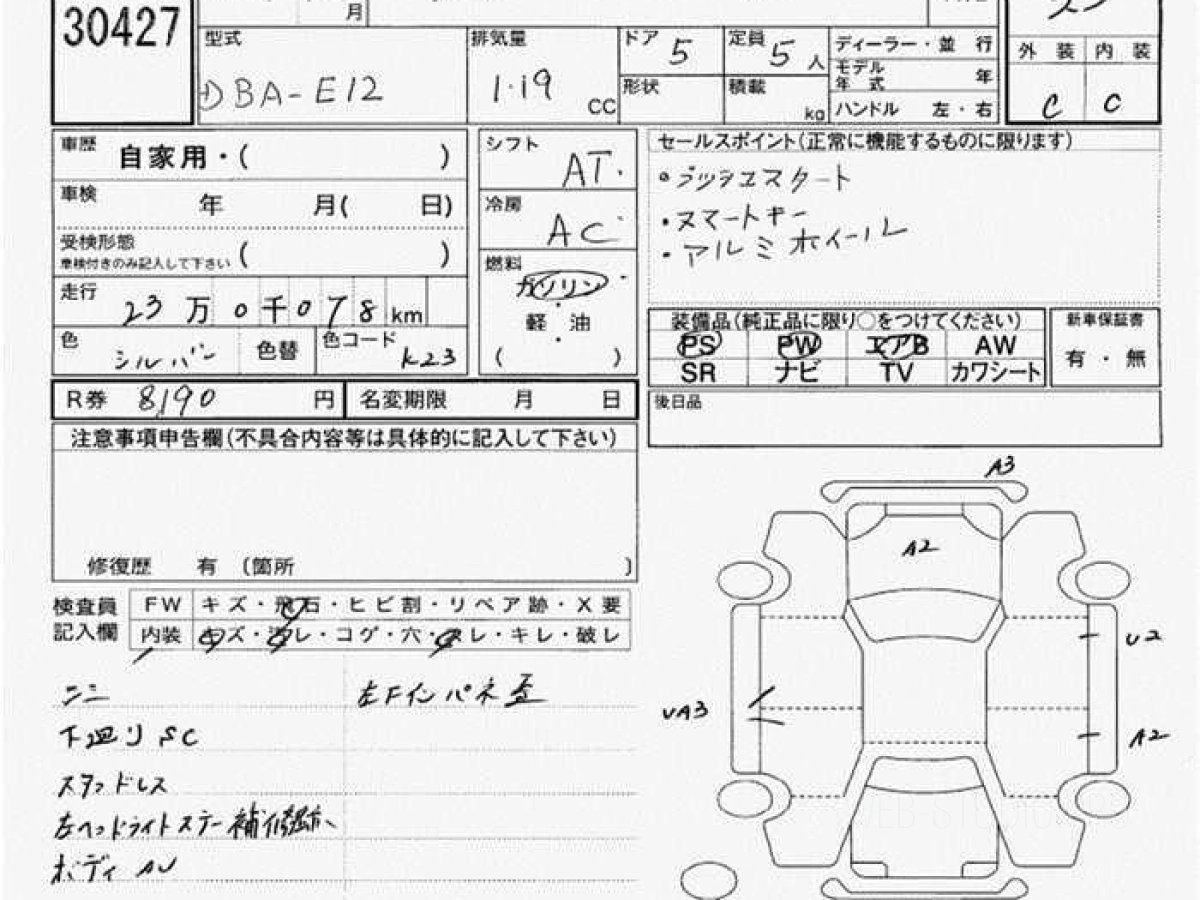 30427
月
型式 DBA-E12
排気量 1.19 CC
ドア 5
定員 5 人
形状
積載 kg
ディーラー・並 行
モデル年式 年
ハンドル 左・右
外 装 内 装
C C
車歴 自家用・( )
車検 年 月( 日)
受検形態 ( )
車検付きのみ記入して下さい
走行 23 万 0 千 0 7 8 km
色 シルバー 色替 色コード K23
シフト AT.
冷房 AC
燃料 ガソリン
・
軽 油
・
( )
セールスポイント(正常に機能するものに限ります)
・プッシュスタート
・スマートキー
・アルミホイール
装備品(純正品に限り○をつけてください)
PS PW エアB AW
SR ナビ TV カワシート
新車保証書
有 ・ 無
R券 8190 円 名変期限 月 日
後日品
注意事項申告欄(不具合内容等は具体的に記入して下さい)
修復歴 有 〔箇所 〕
検査員記入欄
FW キズ・飛石・ヒビ割・リペア跡・X要
内装 キズ・汚レ・コゲ・穴・スレ・キレ・破レ
下廻り SC
スタッドレス
左ヘッドライトステー補修跡
ボディ AU
左Fインパネ歪
A3
A2
U2
UA3
A2